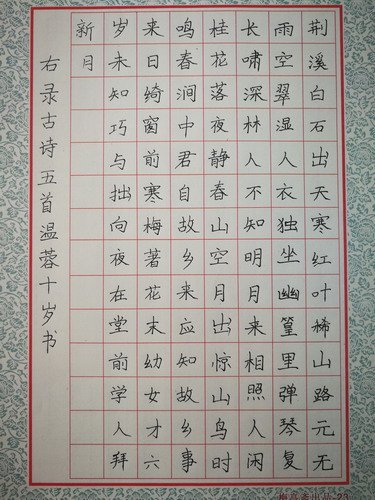 荆溪白石出天寒红叶稀山路元无
雨空翠湿人衣独坐幽篁里弹琴复
长啸深林人不知明月来相照人闲
桂花落夜静春山空月出惊山鸟时
鸣春涧中君自故乡来应知故乡事
来日绮窗前寒梅著花未幼女才六
岁未知巧与拙向夜在堂前学人拜
新月
右录古诗五首温蓉十岁书